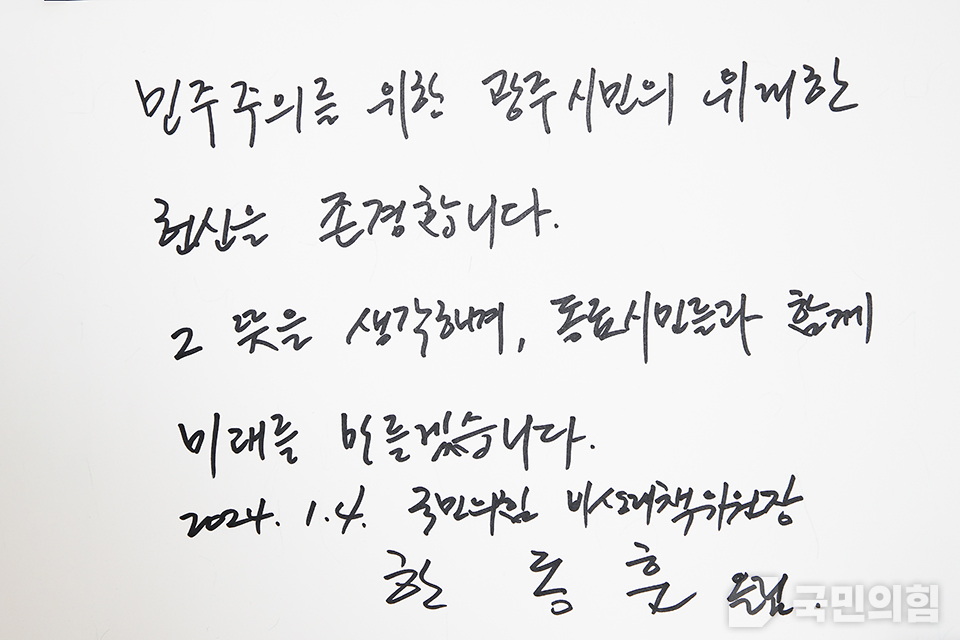 민주주의를 위한 광주시민의 위대한
헌신을 존경합니다.
그 뜻을 생각하며, 동료시민들과 함께
미래를 만들겠습니다.
2024. 1. 4. 국민의힘 비상대책위원장
한 동 훈 올림.
국민의힘